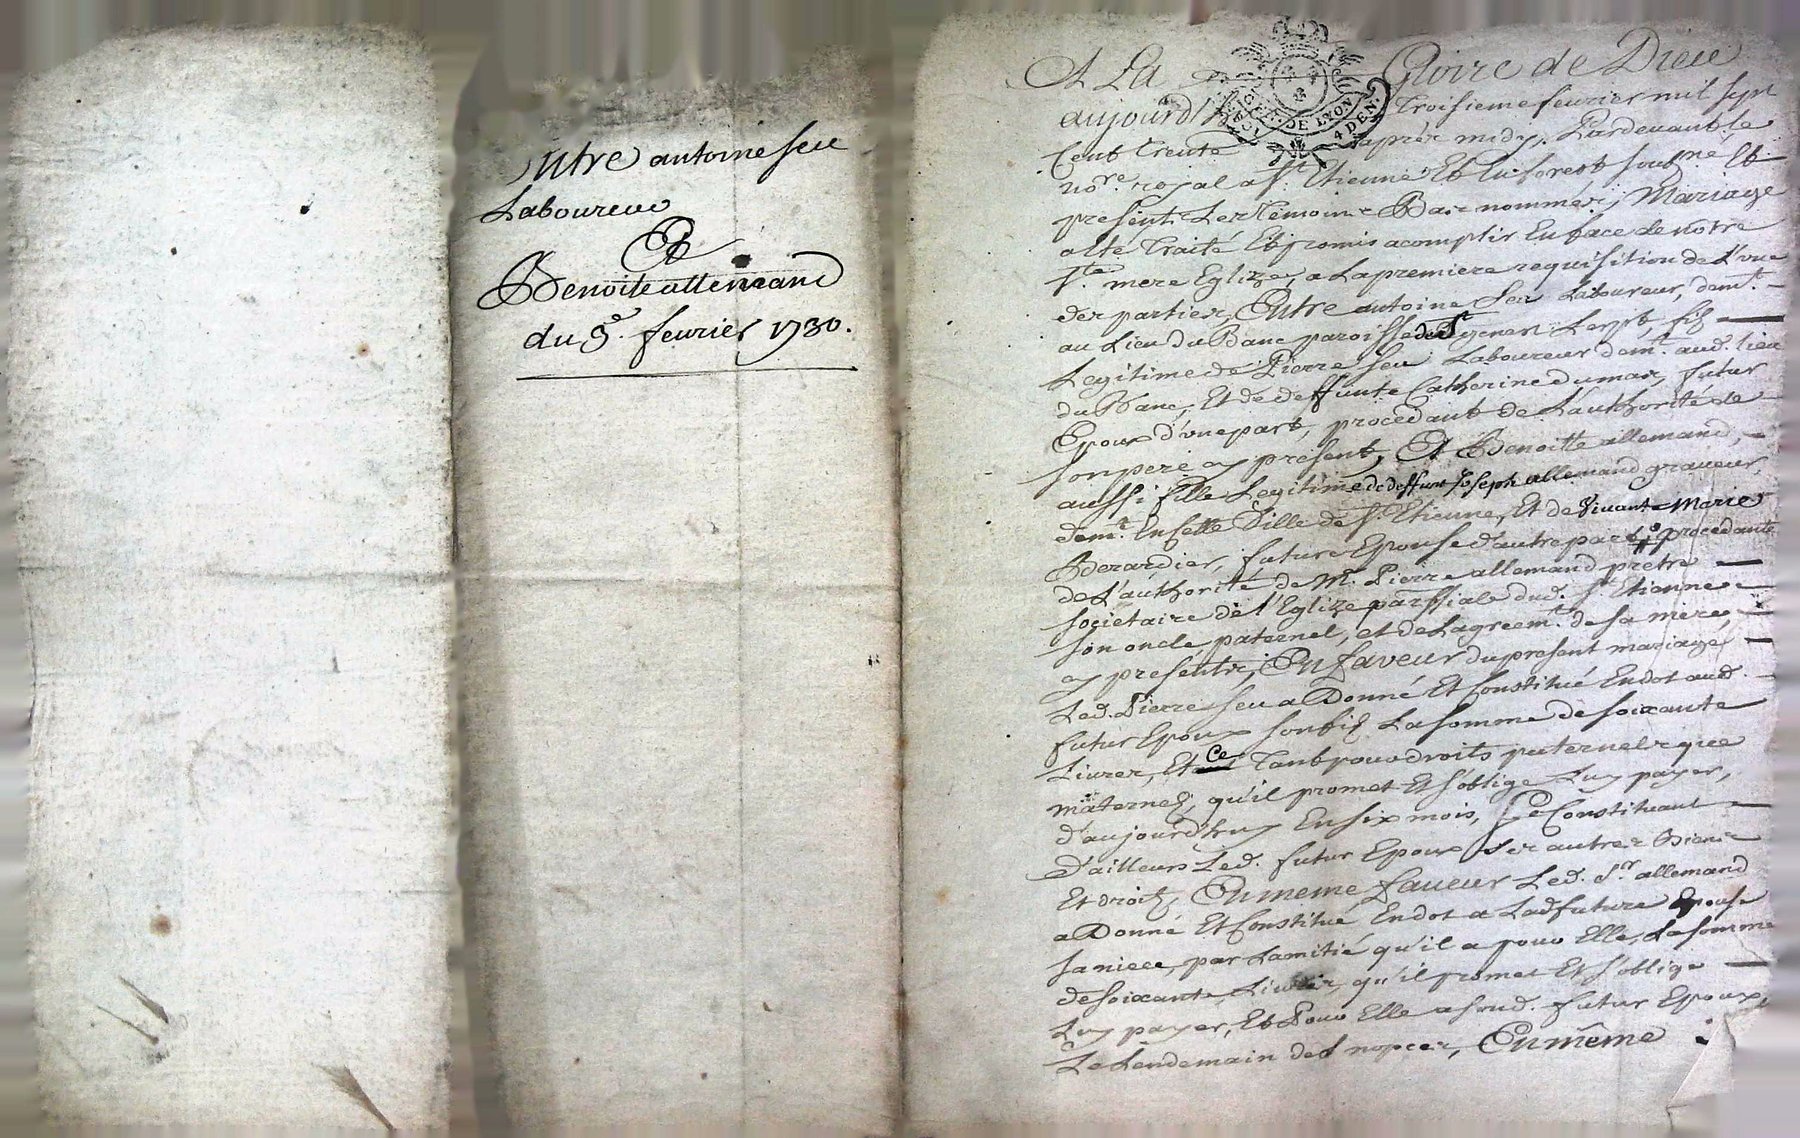 Entre antoine seu
Laboureur
Et
Benoite allemand
du 3.e fevrier 1730.
A La Gloire de Dieu
aujourd'huy Troisieme fevrier mil sept
Cent trente apres midy, Pardevant le
no.re royal a S.t Etienne Et En forest soub.né Et
presents Les temoins Bas nommés, Mariage
a été Traité Et promis acomplir En face de notre
S.te mere Eglize, a La premiere requisition de L'une
des parties, Entre antoine Seu Laboureur, dem.t
au Lieu du Banc paroisse de S.t genest Lerpt, fiz
Legitime de Pierre Seu Laboureur dem.t aud. lieu
du Banc, Et de deffunte Catherine dumas, futur
Epoux d'une part, procedant de L'authorité de
son pere cy present, Et Benoitte allemand,
aussi fille Legitime de deffunt Joseph allemand graveur,
dem.t En cette Ville de S.t Etienne, Et de vivante Marie
Berardier, future Epouse d'autre part, procedante
de L'authorité de M.re Pierre allemand pretre
societaire de l'Eglize parr.ssiale dud. S.t Etienne
son oncle paternel, et de Lagreem.t de sa mere,
cy presents, En faveur du present mariage
Led. Pierre seu a Donné Et Constitué En dot aud.
futur Epoux son fiz La somme de soixante
Livres, Et Ce Tant pour droits paternels que
maternez, qu'il promet Et s'oblige Luy payer,
d'aujourd'huy En six mois, Se Constituant
D'ailleurs Led. futur Epoux ses autres Biens
Et droitz, En meme faveur Led. S.r allemand
a Donné Et Constitué En dot a Lad. future Epouse
sa niece, par Lamitié qu'il a pour Elle, La somme
de soixante Livres, qu'il promet Et s'oblige
Luy payer, Et Pour Elle a sond. futur Epoux,
Le Lendemain des nopces, En même
GENERALITE DE LYON
4 DEN.